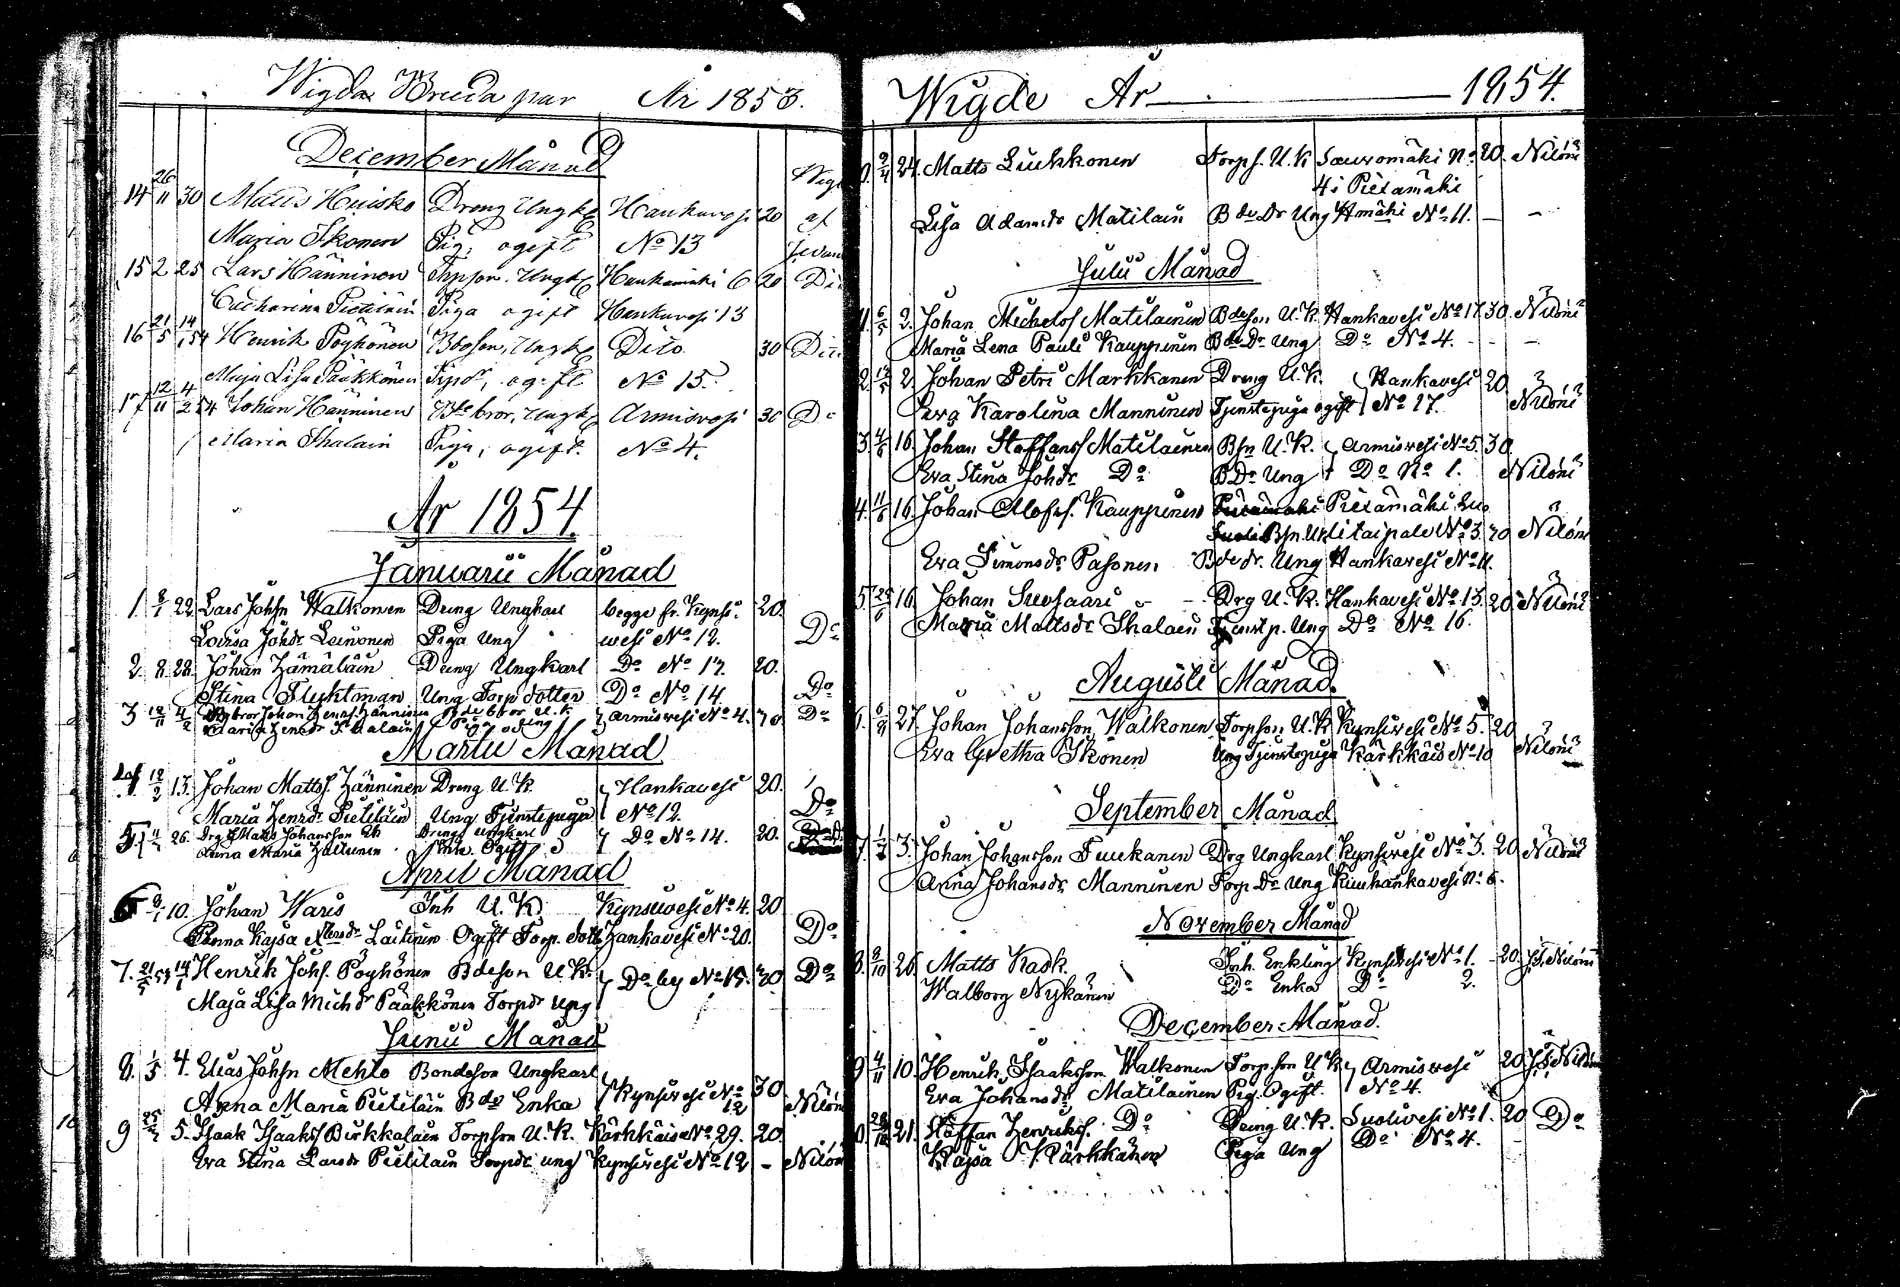 Wigda Bruda par År 1853.
December Månad
14 26/11 30 Matts Huisko Dreng Ungk Hankavesi 20 af
Maria Ikonen Pig; ogift No 13
15 2 25 Lars Hänninen Ungk Hankamäki 6 20
Catharina Piga ogift Hankavesi 13
16 21/5 14/1 54 Henrik Pöyhönen Bdeson, Ungk Dito 30
Maja Lisa Pääkkönen ogift No 15.
17 12/11 4/2 54 Johan Hänninen Bde bror, Ungk Armisvesi 30 Do
Maria Ihalain Piga, ogift. No 4.
År 1854.
Januarii Månad
1 8/1 22. Lars Johsn Walkonen Dreng Ungkarl begge fr. Kynsi- 20.
Lovisa Johdr Leinonen Piga Ung vesi No 12. Do
2. 8. 28. Johan Hämäläin Dreng Ungkarl Do No 17. 20.
Stina Flyktman Ung Torp dotter Do No 14. Do
3 12/11 4/2 Bdebror Johan Henrs. Hänninen Bde bror U. K. Armisvesi No 4. 30 Do
Maria Henrdr Ihalain Piga Ung
Martii Månad
4 12/2 13. Johan Matts. Hänninen Dreng U. K. Hankavesi 20.
Maria Henrdr Pietiläin Ung Tjenstepiga No 12. Do
5. 26. Drg Matts Johansson Dreng Ungkarl Do No 14. 20.
Anna Maria Ogift
April Månad
6 9/1 10. Johan Waris Inh U. K. Kynsivesi No 4. 20
Anna Kajsa Laitinen Ogift Torp. dott. Hankavesi No 20. Do
7. 21/5 53 14/1 Henrik Johs. Pöyhönen Bdeson U. K. Do by No 15. 30 Do
Maja Lisa Michdr Pääkkönen Torpdr Ung
Junii Månad
8. 1/5 4. Elias Johsn Mehto Bondeson Ungkarl Kynsivesi No 12 30.
Anna Maria Pietiläin Bde Enka Nilóni
9 5. Isaak Isaaks Birkkaläin Torpson U. K. Kärkkäis No 29. 20.
Eva Stina Larsdr Pietiläin Torpdr ung Kynsivesi No 12 - Nilóni
Wigde År 1854.
0. 9/4 24. Matts Liukkonen Torps. U. K Sauvomäki No 20. Nilóni
4 i Pietamäki
Lisa Adamsdr Matilain Bde Dr Ung No 11. - -
Julii Månad
1. 6/5 2. Johan Michels Matilainen Bdeson U. K. Hankavesi No 17. 30. Nilóni
Maria Lena Pauls Kauppinen Bde Dr Ung Do No 4. - - -
2. 2. Johan Petri Markkanen Dreng U. K. Hankavesi 20.
Eva Karolina Manninen Tjenstepiga ogift No 17. Nilóni
3. 4/6 16. Johan Staffans Matilainen Bsn U. K. Armisvesi No 5. 30.
Eva Stina Johdr Do B Dr Ung Do No 1. Nilóni
4. 11/6 16. Johan Olofs. Kauppinen Pietamäki
Bsn. U. K. No 3. 20 Nilóni
Eva Simonsdr Pasonen Bde dr. Ung Hankavesi No 11.
5. 25/6 16. Johan Suvsaari - - Drg U. K. Hankavesi No 13. 20. Nilóni
Maria Mattsdr Ihalain Tjenst p. Ung Do No 16.
Augusti Månad.
6. 6/8 27. Johan Johansson Walkonen Torpson U. K Kynsivesi No 5. 20
Eva Gretha Ikonen Ung Tjenstepiga Kärkkäis No 10 Nilóni
September Månad
7. 3. Johan Johansson Tuukanen Drg Ungkarl Kynsivesi No 3. 20 Nilóni
Anna Johansdr Manninen Torp Dr Ung No 6.
November Månad
8. 8/10 26. Matts Kask. Inh. Enkling Kynsivesi No 1. 20. Nilóni
Walborg Nykänen Do Enka Do 2.
December Månad.
9 4/11 10. Henrik Isaaksson Walkonen Torpson U K Armisvesi 20
Eva Johansdr Matilainen Pig. Ogift. No 4.
0. 21. Staffan Henriks. Do Dreng U. K. Suolivesi No 1. 20 Do
Kajsa Kärkkänen Piga Ung Do No 4.